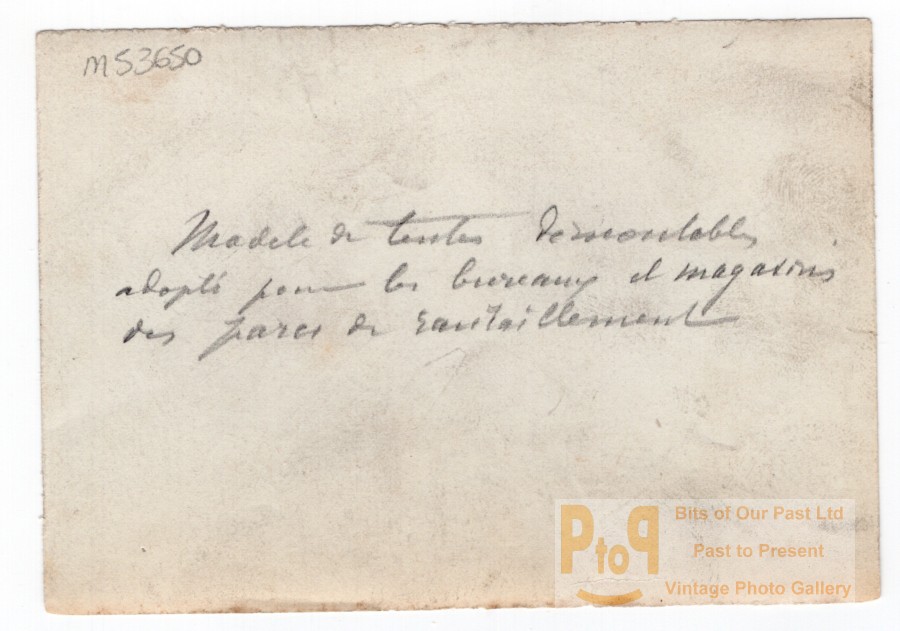 M53650
Modele de tentes demontables
adopté pour les bureaux et magasins
des parcs de ravitaillement
PtoP
Bits of Our Past Ltd
Past to Present
Vintage Photo Gallery